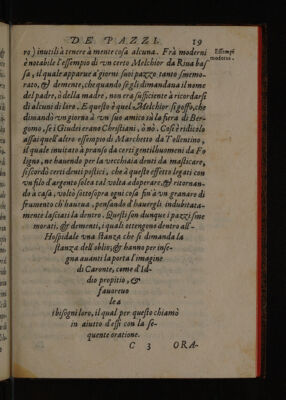 DE PAZZI. 19
ro) inutili à tenere à mente cosa alcuna. Frà moderni
Essempi
è notabile l'essempio di vn certo Melchior da Riua bas
moderni.
sa, il quale apparue a' giorni suoi pazzo, tanto smemo-
rato, & demente, che quando se gli dimandaua il nome
del padre, ò della madre, non era sufficiente à ricordarsi
di alcuni di loro. E questo è quel Melchior sì goffo, che
dimandò vn giorno à vn suo amico sù la fiera di Ber-
gomo, se i Giudei erano Christiani, ò nò. Cos'è ridicolo
assai quell'altro essempio di Marchetto da Tollentino,
il quale inuitato à pranso da certi gentilhuomeni da Fo
ligno, ne hauendo per la vecchiaia denti da masticare,
si scordò certi denti posticci, che à questo effetto legati con
vn filo d'argento solea tal volta adoperare, & ritornan-
do à casa, voltò sottosopra ogni cosa fin' à vn granaro di
frumento ch'haueua, pensando d'hauergli indubitata-
mente lasciati là dentro. Questi son dunque i pazzi sme
morati, & dementi, i quali ottengono dentro all'-
Hospidale vna stanza che si dimanda la
stanza dell'oblio; & hanno per inse-
gna auanti la porta l'imagine
di Caronte, come d'Id-
dio propitio, &
fauoreuo
le a
i bisogni loro, il qual per questo chiamò
in aiutto d'essi con la se-
quente oratione.
C 3 ORA-